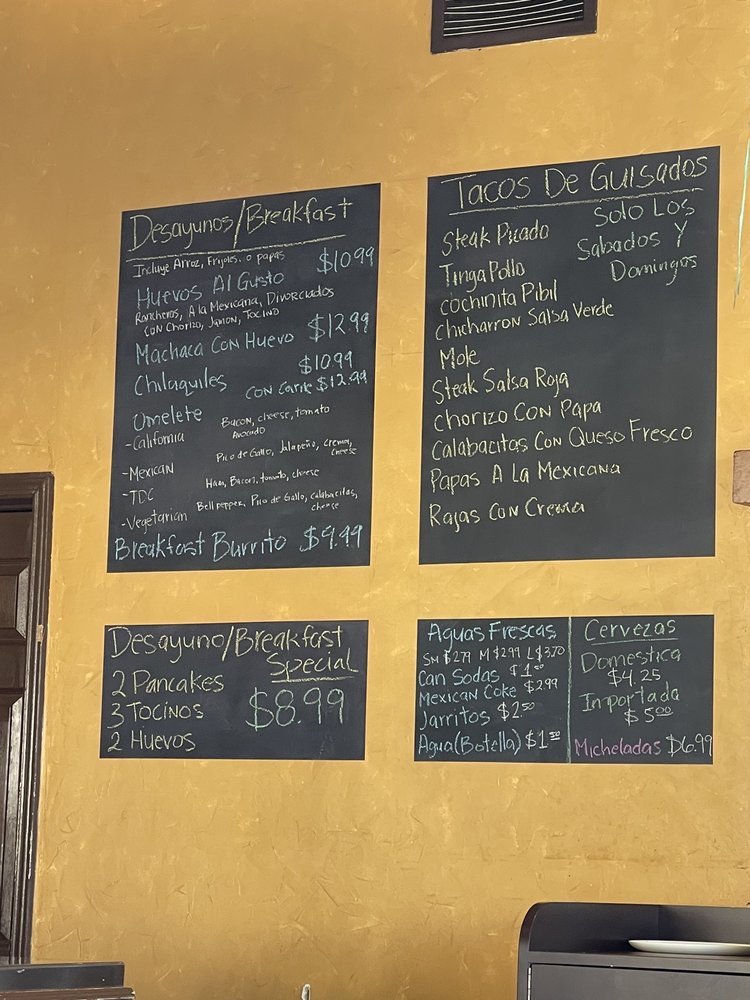 Desayunos/Breakfast
Incluye Arroz, Frijoles, o papas
Huevos Al Gusto $10.99
Rancheros, A la Mexicana, Divorciados
con Chorizo, Jamon, Tocino
Machaca Con Huevo $12.99
Chilaquiles $10.99
con Carne $12.99
Omelete
-California Bacon, cheese, tomato
Avocado
-Mexican Pico de Gallo, Jalapeño, Crema,
Cheese
-TDC Ham, Bacon, tomato, cheese
-Vegetarian Bell pepper, Pico de Gallo, calabacitas,
cheese
Breakfast Burrito $9.99
Tacos De Guisados
Solo Los
Sabados Y
Domingos
Steak Picado
Tinga Pollo
Cochinita Pibil
Chicharron Salsa Verde
Mole
Steak Salsa Roja
Chorizo Con Papa
Calabacitas Con Queso Fresco
Papas A La Mexicana
Rajas Con Crema
Desayuno/Breakfast
Special
2 Pancakes
3 Tocinos
2 Huevos
$8.99
Aguas Frescas
Sm $2.79 M $2.99 L $3.70
Can Sodas
Mexican Coke $2.99
Jarritos $2.50
Agua (Botella)
Cervezas
Domestica
$4.25
Importada
$5.00
Micheladas $6.99